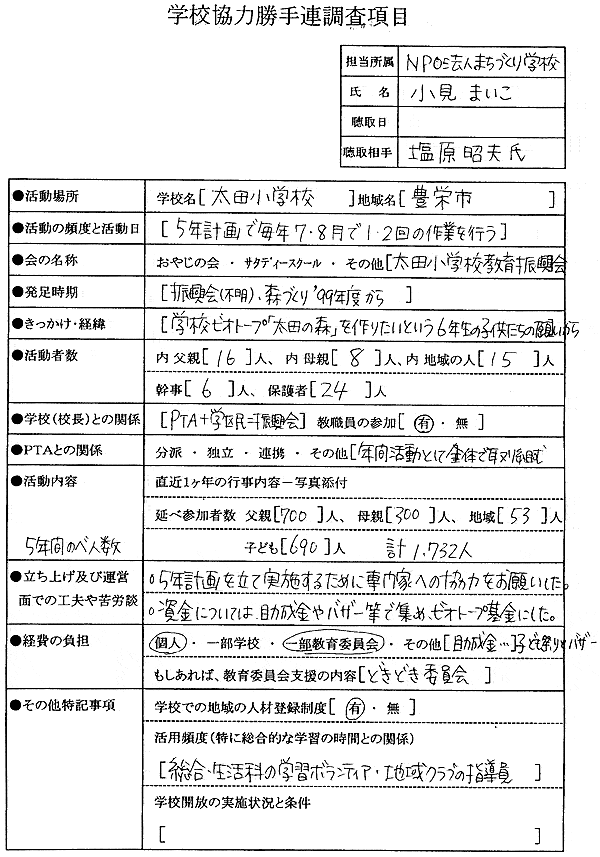 学校協力勝手連調査項目
担当所属 NPO法人まちづくり学校
氏　名 小見 まいこ
聴取日
聴取相手 塩原昭夫氏
●活動場所 学校名[太田小学校　]地域名[豊栄市　]
●活動の頻度と活動日 [5年計画で毎年7・8月で1・2回の作業を行う]
●会の名称 おやじの会 ・ サタデースクール ・ その他[太田小学校教育振興会
●発足時期 [振興会(不明)、森づくり'99年度から　]
●きっかけ・経緯 [学校ビオトープ「太田の森」を作りたいという6年生の子供たちの願いから
●活動者数 内 父親[16]人、 内 母親[8]人、内 地域の人[15]人
幹事[6]人、保護者[24]人
●学校(校長)との関係 [PTA+学区民=振興会] 教職員の参加[有・無]
●PTAとの関係 分派 ・ 独立 ・ 連携 ・ その他[年間活動として全体で取り組む
●活動内容 直近1ヶ年の行事内容－写真添付
延べ参加者数 父親[700]人、 母親[300]人、 地域[53]人
5年間のべ人数 子ども[690]人　計 1,732人
●立ち上げ及び運営 ○5年計画を立て実施するために専門家への協力をお願いした。
面での工夫や苦労談 ○資金については、助成金やバザー等で集め、ビオトープ基金にした。
●経費の負担 個人 ・ 一部学校 ・ 一部教育委員会 ・ その他[助成金…]子ども祭りとバザー
もしあれば、教育委員会支援の内容[どきどき委員会　]
●その他特記事項 学校での地域の人材登録制度[有・無]
活用頻度(特に総合的な学習の時間との関係)
[総合・生活科の学習ボランティア・地域クラブの指導員　]
学校開放の実施状況と条件
[　]